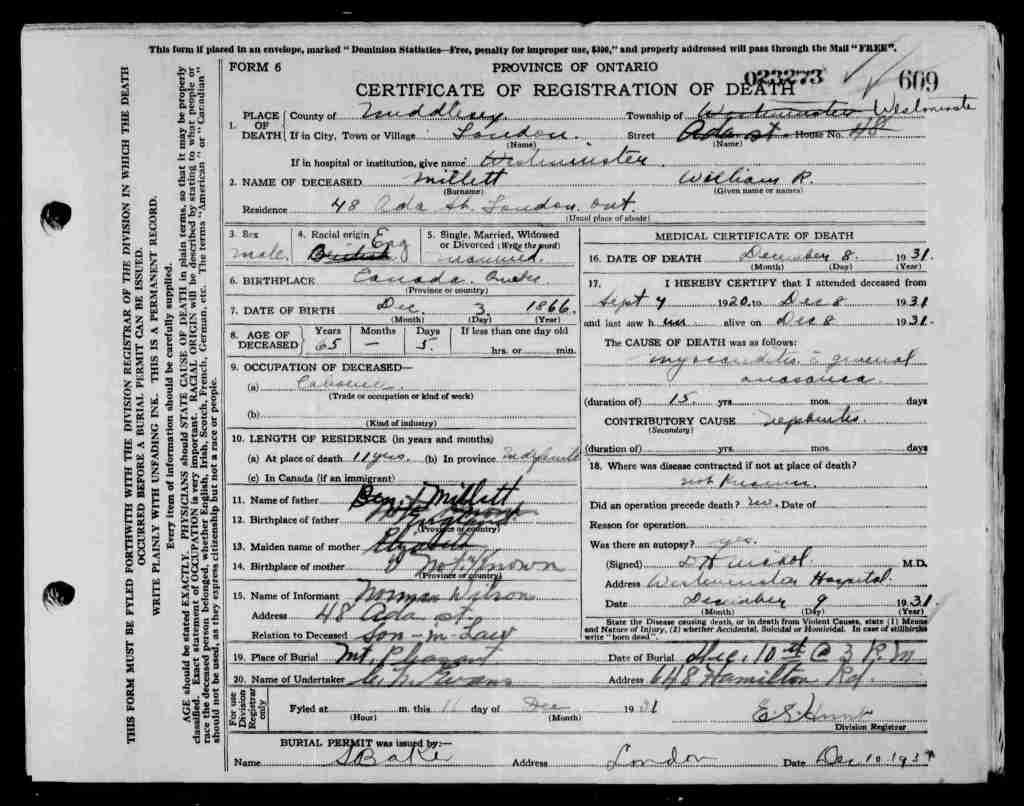 This form if placed in an envelope, marked "Dominion Statistics—Free, penalty for improper use, $300," and properly addressed will pass through the Mail "FREE".
FORM 6 PROVINCE OF ONTARIO 023273 609
CERTIFICATE OF REGISTRATION OF DEATH
1. PLACE OF DEATH County of Middlesex Township of Westminster Westminster
If in City, Town or Village London. Street Ada St. House No. 48
(Name) (Name)
If in hospital or institution, give name Westminster
2. NAME OF DECEASED Millett William R.
(Surname) (Given name or names)
Residence 48 Ada St. London Ont.
(Usual place of abode)
3. Sex Male. 4. Racial origin Eng British 5. Single, Married, Widowed or Divorced (Write the word) married.
6. BIRTHPLACE Canada. Quebec
(Province or country)
7. DATE OF BIRTH Dec. 3 1866.
(Month) (Day) (Year)
8. AGE OF DECEASED Years 65 Months — Days 5. If less than one day old hrs. or min.
9. OCCUPATION OF DECEASED—
(a)
(Trade or occupation or kind of work)
(b)
(Kind of industry)
10. LENGTH OF RESIDENCE (in years and months)
(a) At place of death 11 yrs. (b) In province
(c) In Canada (if an immigrant)
11. Name of father Benj. Millett
12. Birthplace of father England
(Province or country)
13. Maiden name of mother Elizabeth
14. Birthplace of mother Not Known
(Province or country)
15. Name of Informant Norman Wilson
Address 48 Ada St.
Relation to Deceased Son-in-Law
MEDICAL CERTIFICATE OF DEATH
16. DATE OF DEATH December 8. 1931.
(Month) (Day) (Year)
17. I HEREBY CERTIFY that I attended deceased from
Sept 4 1920, to Dec 8 1931
and last saw him alive on Dec 8 1931.
The CAUSE OF DEATH was as follows:
myocarditis c general
anasarca.
(duration of) 15 yrs. mos. days
CONTRIBUTORY CAUSE nephritis.
(Secondary)
(duration of) yrs. mos. days
18. Where was disease contracted if not at place of death?
not known
Did an operation precede death? no. Date of
Reason for operation
Was there an autopsy? yes.
(Signed) M.D.
Address Westminster Hospital.
Date December 9 1931.
(Month) (Day) (Year)
State the Disease causing death, or in death from Violent Causes, state (1) Means
and Nature of Injury, (2) whether Accidental, Suicidal or Homicidal. In case of stillbirths
write "born dead".
19. Place of Burial Mt. Pleasant Date of Burial Dec. 10th @ 3 P.M
20. Name of Undertaker Evans Address 648 Hamilton Rd.
For use Division Registrar only
Fyled at m. this day of Dec 1931
(Hour) (Month) Division Registrar
BURIAL PERMIT was issued by:—
Name S Baker Address London Date Dec 10 1931
THIS FORM MUST BE FYLED FORTHWITH WITH THE DIVISION REGISTRAR OF THE DIVISION IN WHICH THE DEATH
OCCURRED BEFORE A BURIAL PERMIT CAN BE ISSUED.
WRITE PLAINLY WITH UNFADING INK. THIS IS A PERMANENT RECORD.
Every item of information should be carefully supplied.
AGE should be stated EXACTLY. PHYSICIANS should STATE CAUSE OF DEATH in plain terms, so that it may be properly
classified. Exact statement of OCCUPATION is very important. RACIAL ORIGIN will be described by stating to what people or
race the deceased person belonged, whether English, Irish, Scotch, French, German, etc. The terms "American" or "Canadian"
should not be used, as they express citizenship but not a race or people.